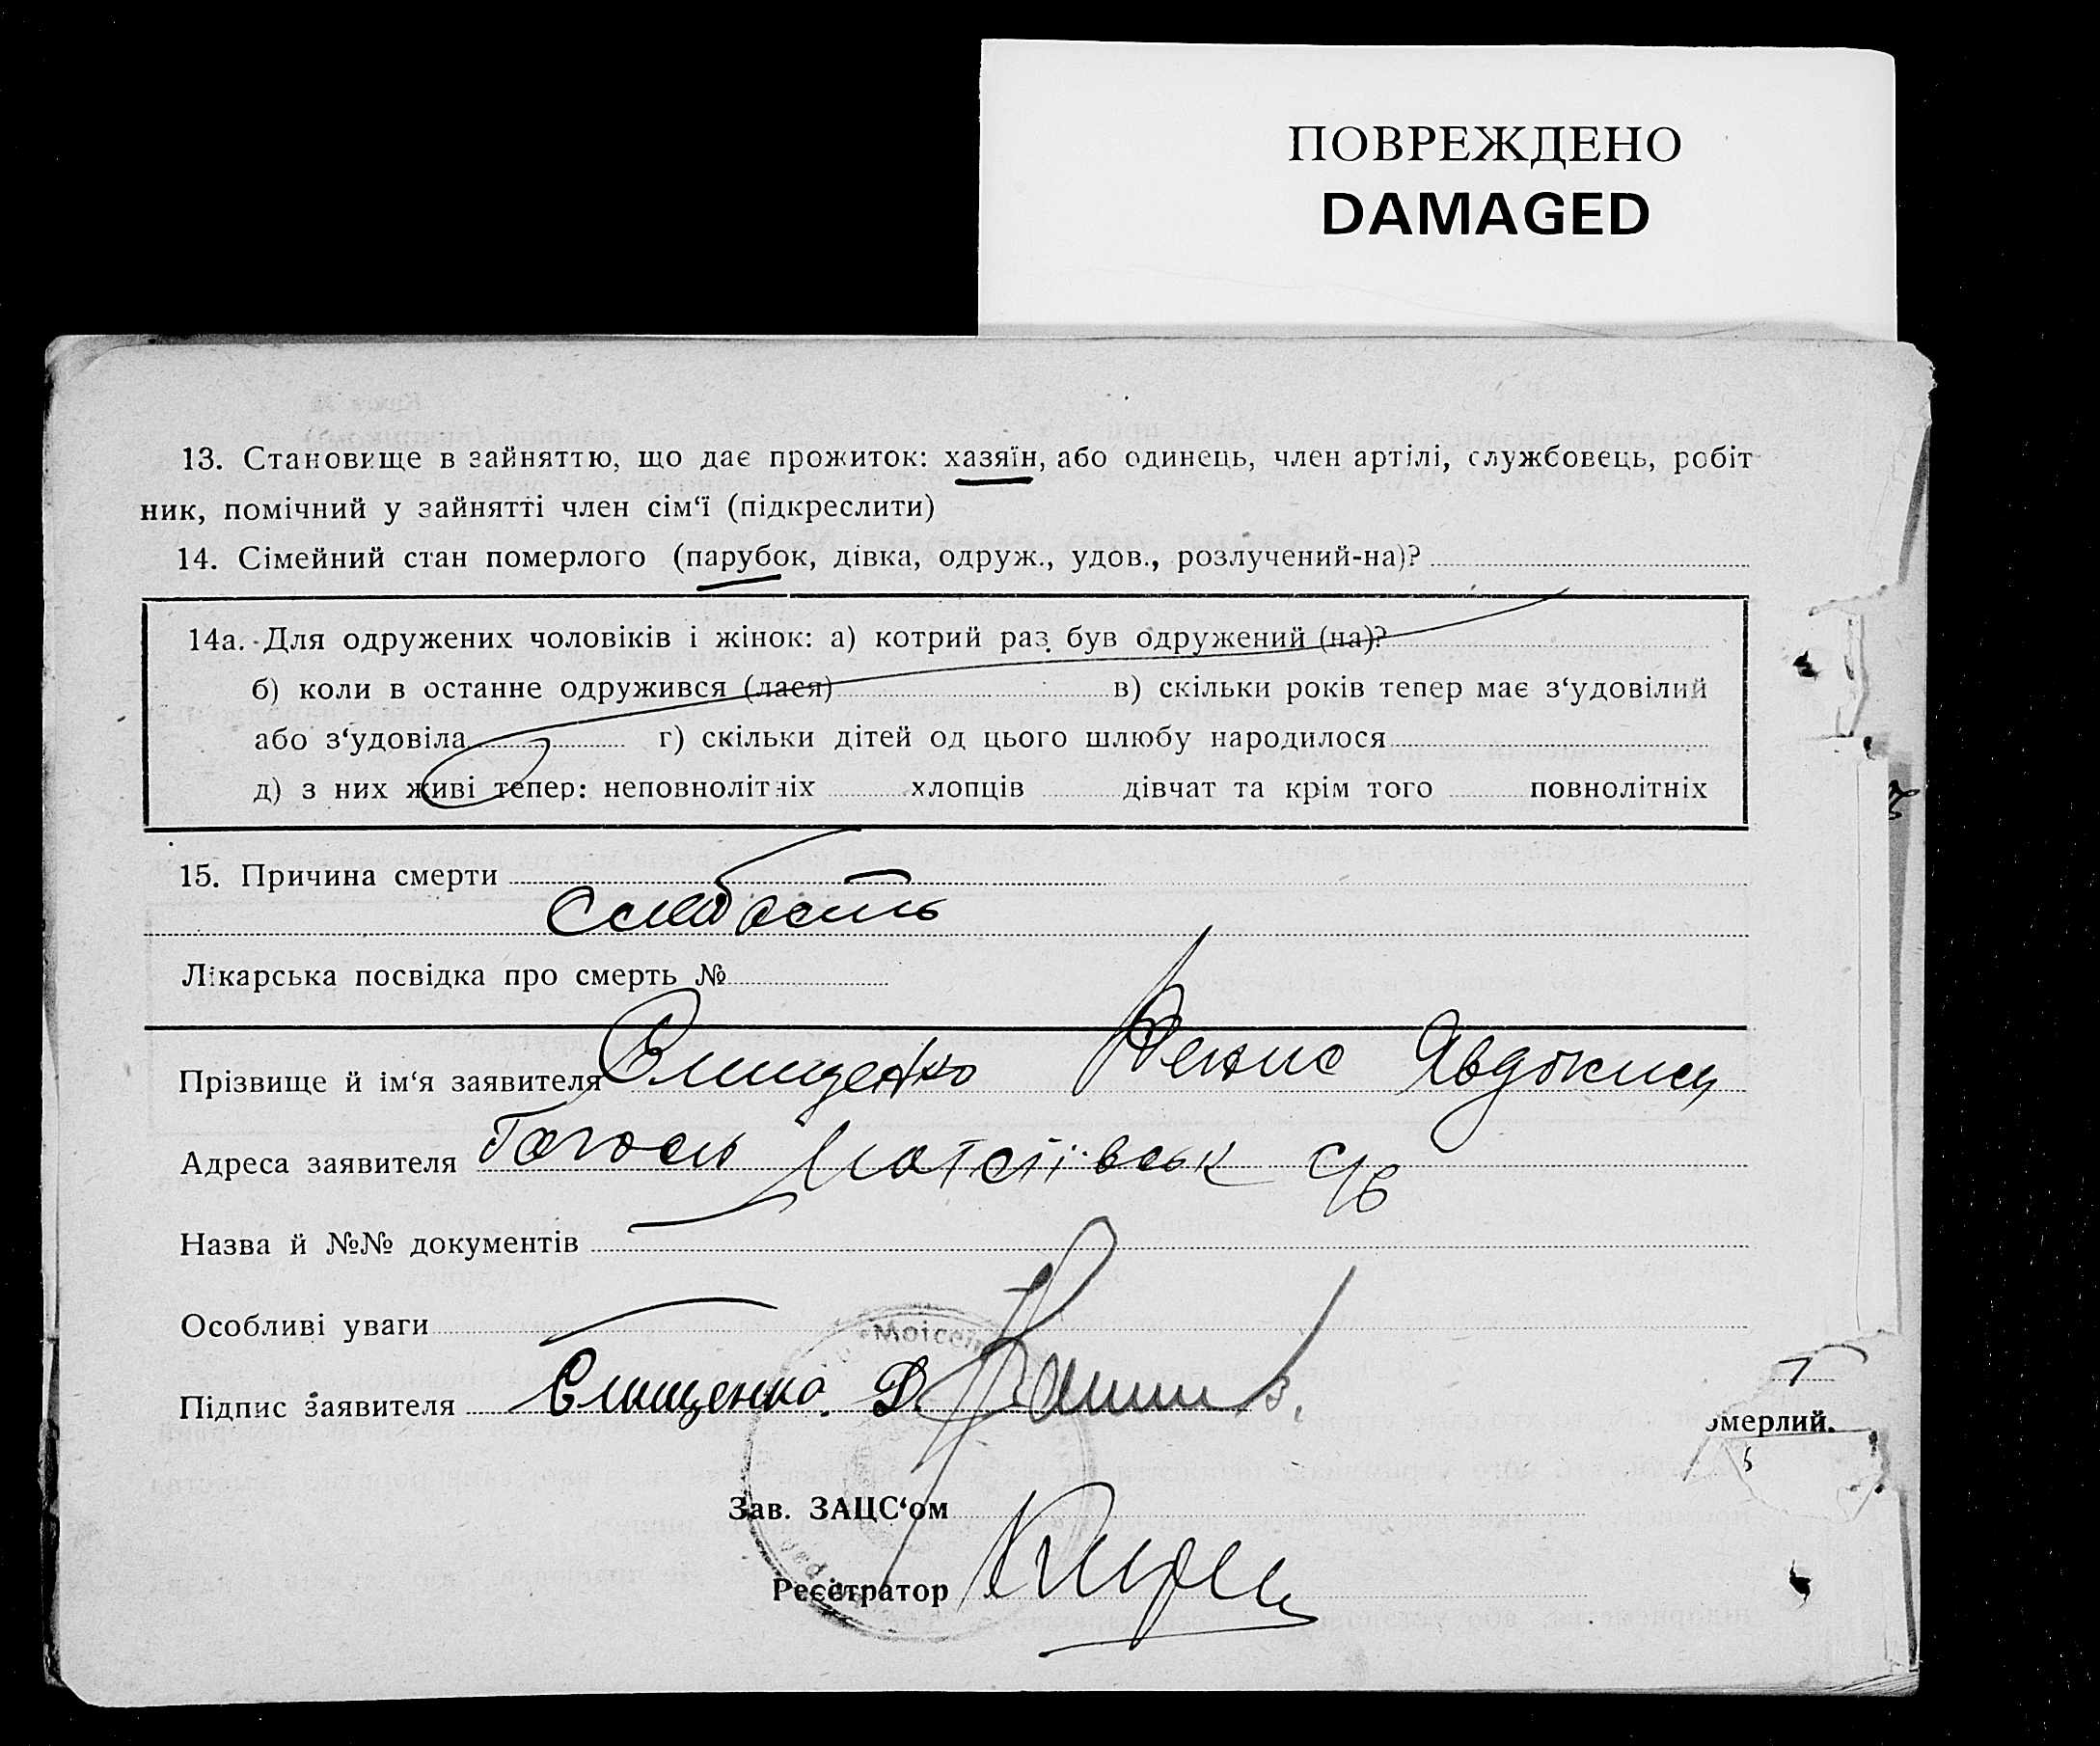 ПОВРЕЖДЕНО
DAMAGED
13. Становище в зайняттю, що дає прожиток: хазяїн, або одинець, член артілі, службовець, робіт
ник, помічний у зайнятті член сім‘ї (підкреслити)
14. Сімейний стан померлого (парубок, дівка, одруж., удов., розлучений-на)?
14а. Для одружених чоловіків і жінок: а) котрий раз був одружений (на)?
б) коли в останне одружився (лася) в) скільки років тепер має з‘удовілий
або з‘удовіла г) скільки дітей од цього шлюбу народилося
д) з них живі тепер: неповнолітніх хлопців дівчат та крім того повнолітніх
15. Причина смерти
Слабость
Лікарська посвідка про смерть №
Прізвище й ім‘я заявителя Єлищенко Денис Явдоким
Адреса заявителя Гоголь
Назва й №№ документів
Особливі уваги
Підпис заявителя Єлищенко. Д.
омерлий.
Зав. ЗАЦС‘ом
Реєстратор